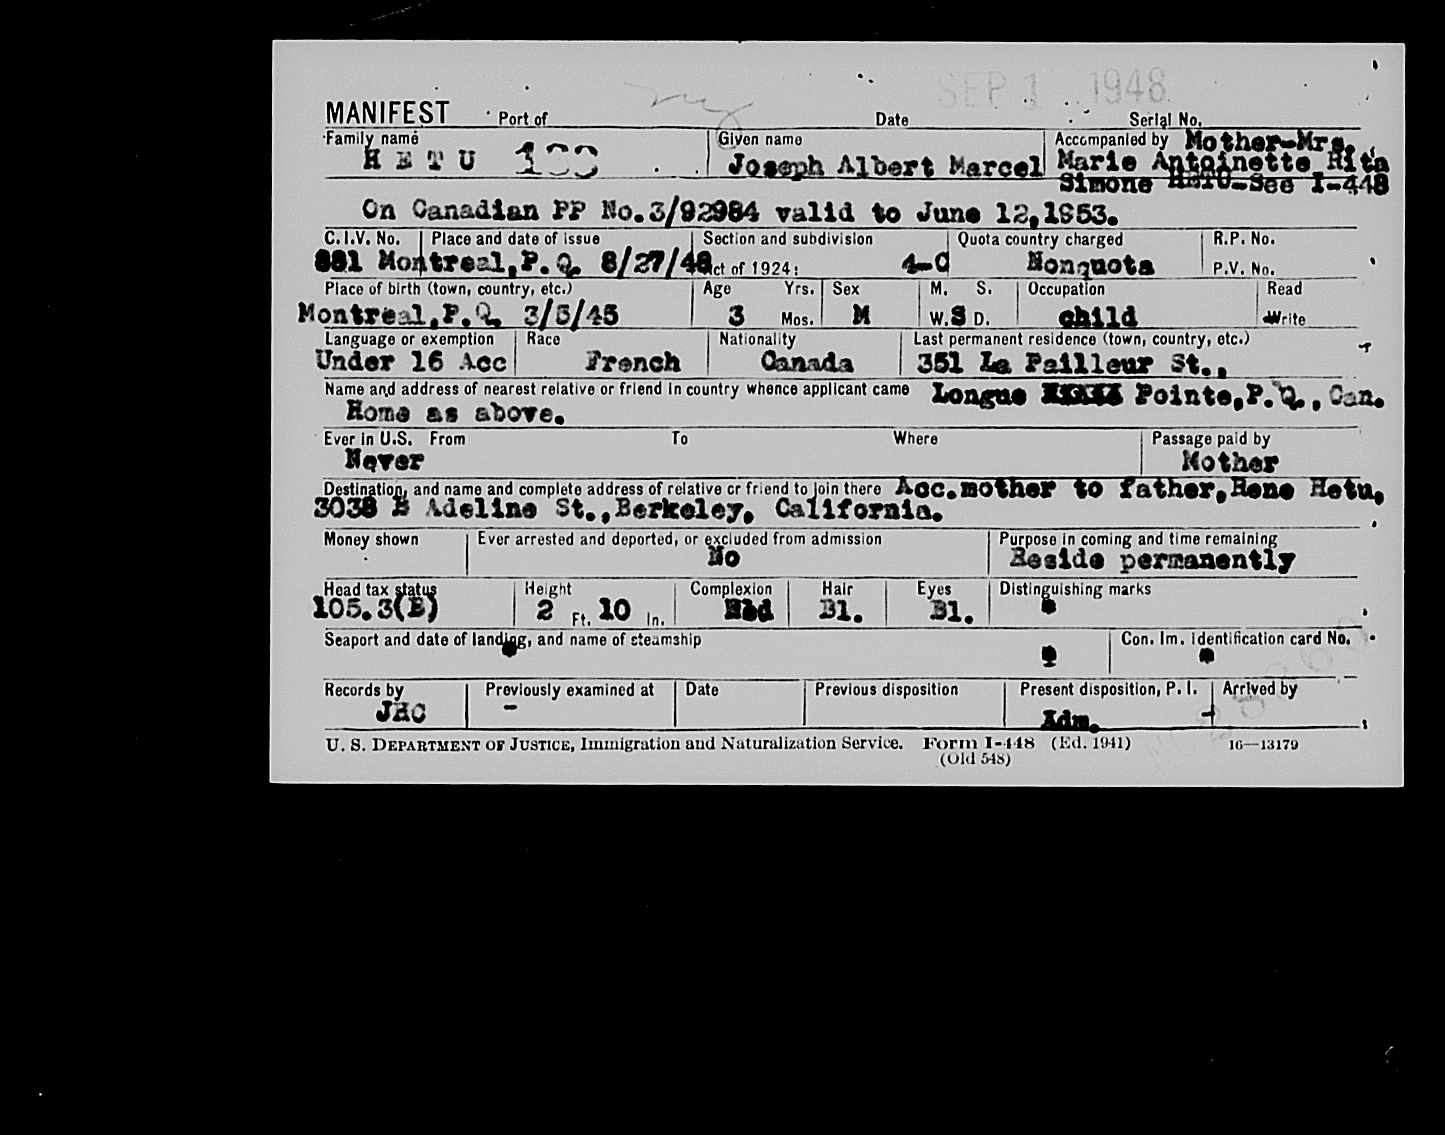 SEP 1 1948
MANIFEST Port of Date Serial No.
Family name Given name Accompanied by Mother-Mrs.
HETU Joseph Albert Marcel Marie Antoinette Rita
Simone HETU-See I-448
On Canadian PP No.3/92984 valid to June 12,1953.
C.I.V. No. Place and date of issue Section and subdivision Quota country charged R.P. No.
881 Montreal,P.Q. 8/27/48 Act of 1924: 4-C Nonquota P.V. No.
Place of birth (town, country, etc.) Age Yrs. Sex M. S. Occupation Read
Montreal,P.Q. 3/5/45 3 Mos. M W. S D. child Write
Language or exemption Race Nationality Last permanent residence (town, country, etc.)
Under 16 Acc French Canada 351 La Pailleur St.,
Name and address of nearest relative or friend in country whence applicant came Longue Pointe,P.Q., Can.
Home as above.
Ever in U.S. From To Where Passage paid by
Never Mother
Destination, and name and complete address of relative or friend to join there Acc.mother to father,Rene Hetu,
3038 B Adeline St.,Berkeley, California.
Money shown Ever arrested and deported, or excluded from admission Purpose in coming and time remaining
No Reside permanently
Head tax status Height Complexion Hair Eyes Distinguishing marks
105.3(E) 2 Ft. 10 In. Bl. Bl.
Seaport and date of landing, and name of steamship Con. Im. Identification card No.
Records by Previously examined at Date Previous disposition Present disposition, P. I. Arrived by
JHC - Adm. -
U. S. DEPARTMENT OF JUSTICE, Immigration and Naturalization Service. Form I-448 (Ed. 1941) 16—13179
(Old 548)